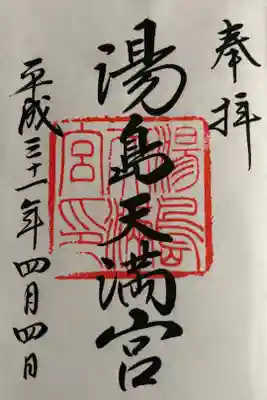 奉拝
湯島天満宮
平成三十一年四月四日
湯島天満宮印